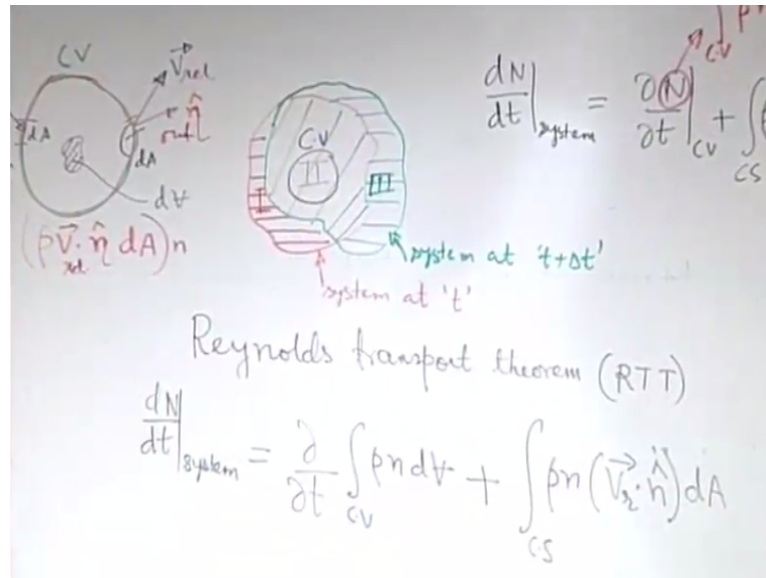 CV
V⃗rel
n̂
out
dA
dA
d∀
(ρV⃗rel·n̂ dA)n
C.V
I
II
III
system at 't+Δt'
system at 't'
dN/dt|system = ∂N/∂t|CV + ∫CS
CV
Reynolds transport theorem (RTT)
dN/dt|system = ∂/∂t ∫CV ρnd∀ + ∫CS ρn(V⃗r·n̂)dA